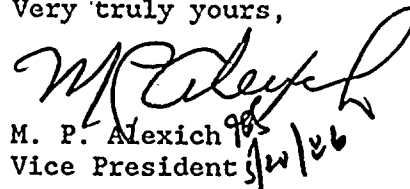 Very truly yours,
M. P. Alexich
Vice President